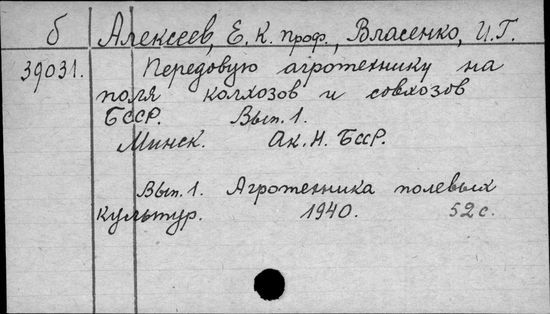 б Алексеев, Е. К. проф., Власенко, И.Г.
39031. Передовую агротехнику на
поля колхозов и совхозов
БССР. Вып. 1.
Минск. Ак. Н. БССР.
Вып. 1. Агротехника полевых
культур. 1940. 52 с.